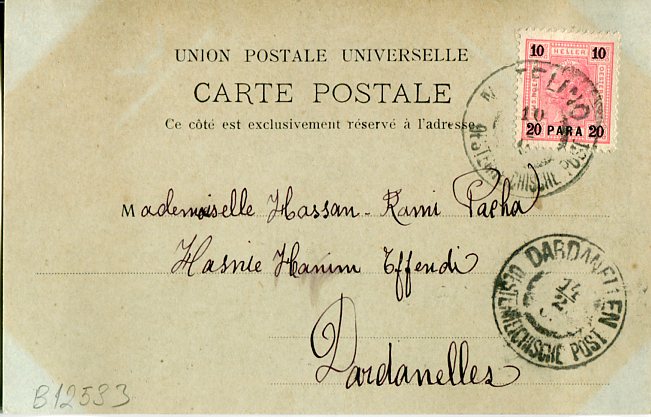 UNION POSTALE UNIVERSELLE
CARTE POSTALE
Ce côté est exclusivement réservé à l'adresse
10 HELLER 10
20 PARA 20
10
OESTERREICHISCHE POST
Mademoiselle Hassan-Rami Pacha
Hasnie Hanım Effendi
Dardanelles
DARDANELLEN
14
2
OESTERREICHISCHE POST
B12533